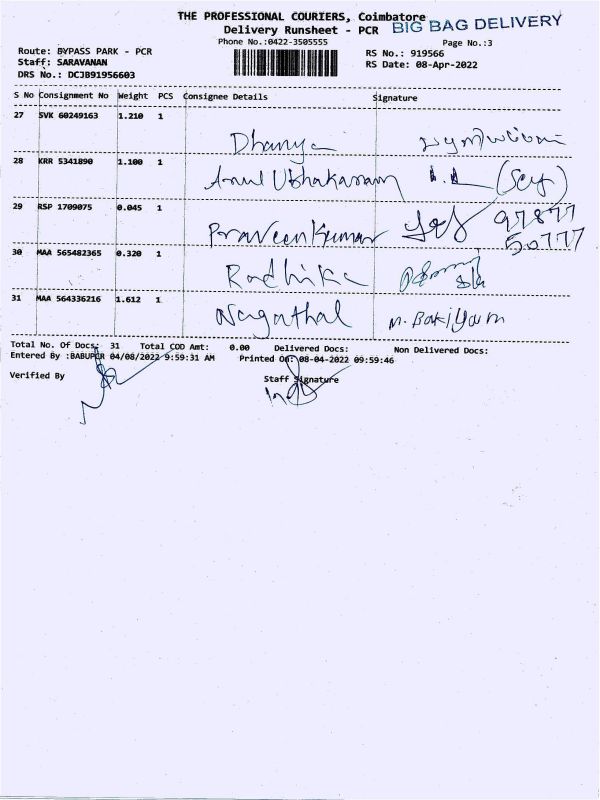 THE PROFESSIONAL COURIERS, Coimbatore
BIG BAG DELIVERY
Delivery Runsheet - PCR
Phone No.:0422-3505555
Page No.:3
Route: BYPASS PARK - PCR
RS No.: 919566
Staff: SARAVANAN
RS Date: 08-Apr-2022
DRS No.: DCJB91956603
S No Consignment No Weight PCS Consignee Details Signature
27 SVK 60249163 1.210 1
Dhanya
28 KRR 5341890 1.100 1
29 RSP 1709075 0.045 1
Praveen Kumar 97877
50777
30 MAA 565482365 0.320 1
Radhika
31 MAA 564336216 1.612 1
Nagathal M. Bakiyam
Total No. Of Docs: 31 Total COD Amt: 0.00 Delivered Docs: Non Delivered Docs:
Entered By :BABUPCR 04/08/2022 9:59:31 AM Printed On: 08-04-2022 09:59:46
Verified By
Staff Signature